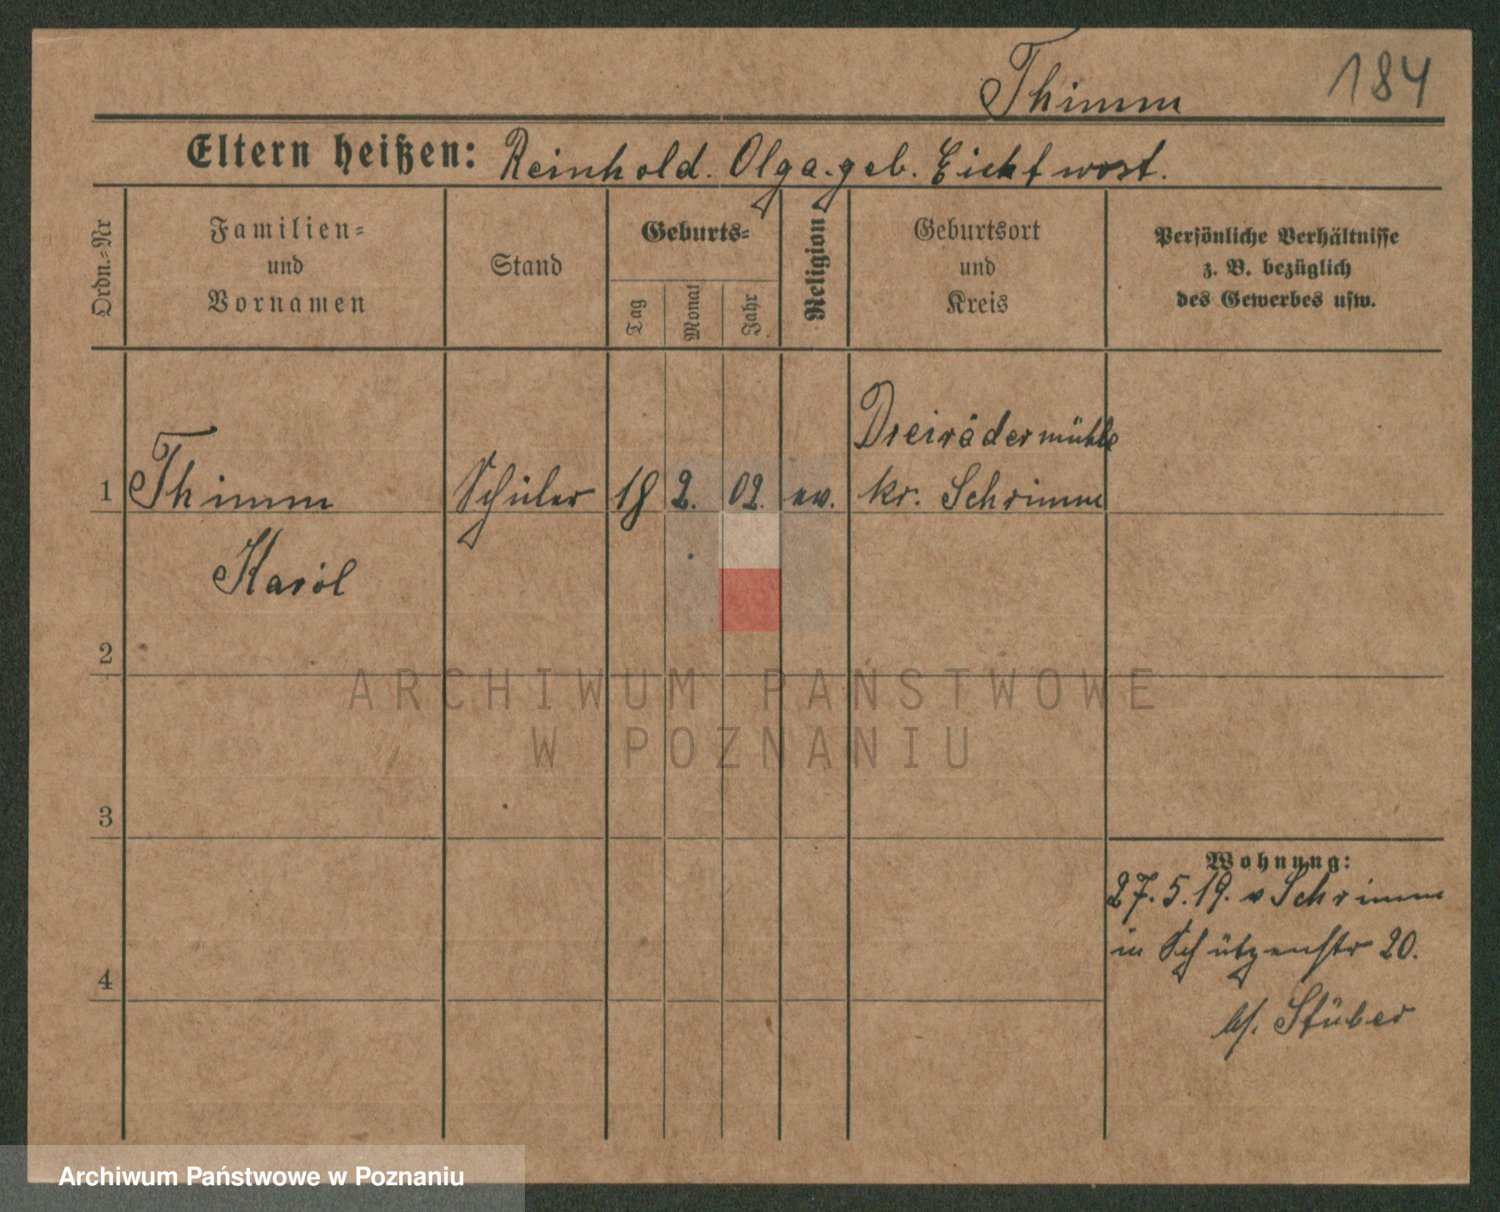 Thimm 184
Eltern heißen: Reinhold. Olga. geb.
Ordn.-Nr
Familien-
und
Vornamen
Stand
Geburts-
Tag
Monat
Jahr
Religion
Geburtsort
und
Kreis
Persönliche Verhältnisse
z. B. bezüglich
des Gewerbes usw.
Dreirädermühle
1 Thimm Schüler 18 2. 02. ev. kr. Schrimm
Karol
2
ARCHIWUM PAŃSTWOWE
W POZNANIU
3
Wohnung:
27.5.19. v Schrimm
in Schützenstr 20.
4
b/. Stüber
Archiwum Państwowe w Poznaniu